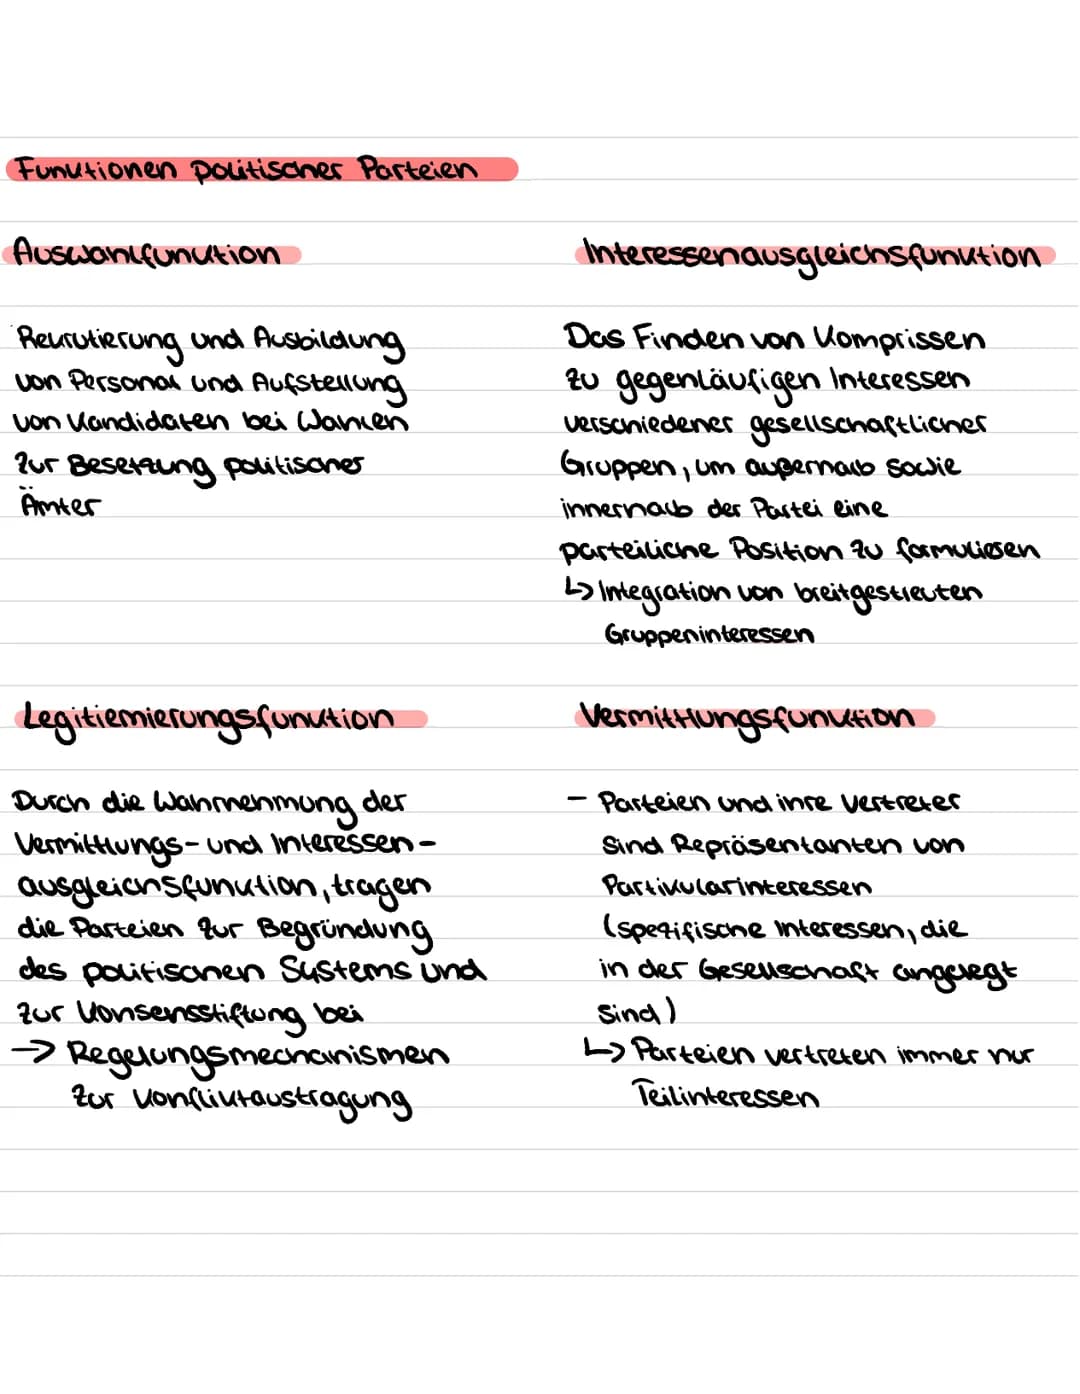 Funktionen politischer Parteien
Auswahlfunktion
Rekrutierung und Ausbildung
von Personal und Aufstellung
von Kandidaten bei Wahlen
zur Besetzung politischer
Ämter
Interessenausgleichsfunktion
Das Finden von Komprissen
zu gegenläufigen Interessen
verschiedener gesellschaftlicher
Gruppen, um außerhalb sowie
innerhalb der Partei eine
parteiliche Position zu formulieren
↳ Integration von breitgestreuten
Gruppeninteressen
Legitiemierungsfunktion
Durch die Wahrnehmung der
Vermittlungs- und Interessen-
ausgleichsfunktion, tragen
die Parteien zur Begründung
des politischen Systems und
zur Konsensstiftung bei
→ Regelungsmechanismen
zur Konfliktaustragung
Vermittlungsfunktion
- Parteien und ihre Vertreter
sind Repräsentanten von
Partikularinteressen
(spezifische Interessen, die
in der Gesellschaft angelegt
sind)
↳ Parteien vertreten immer nur
Teilinteressen